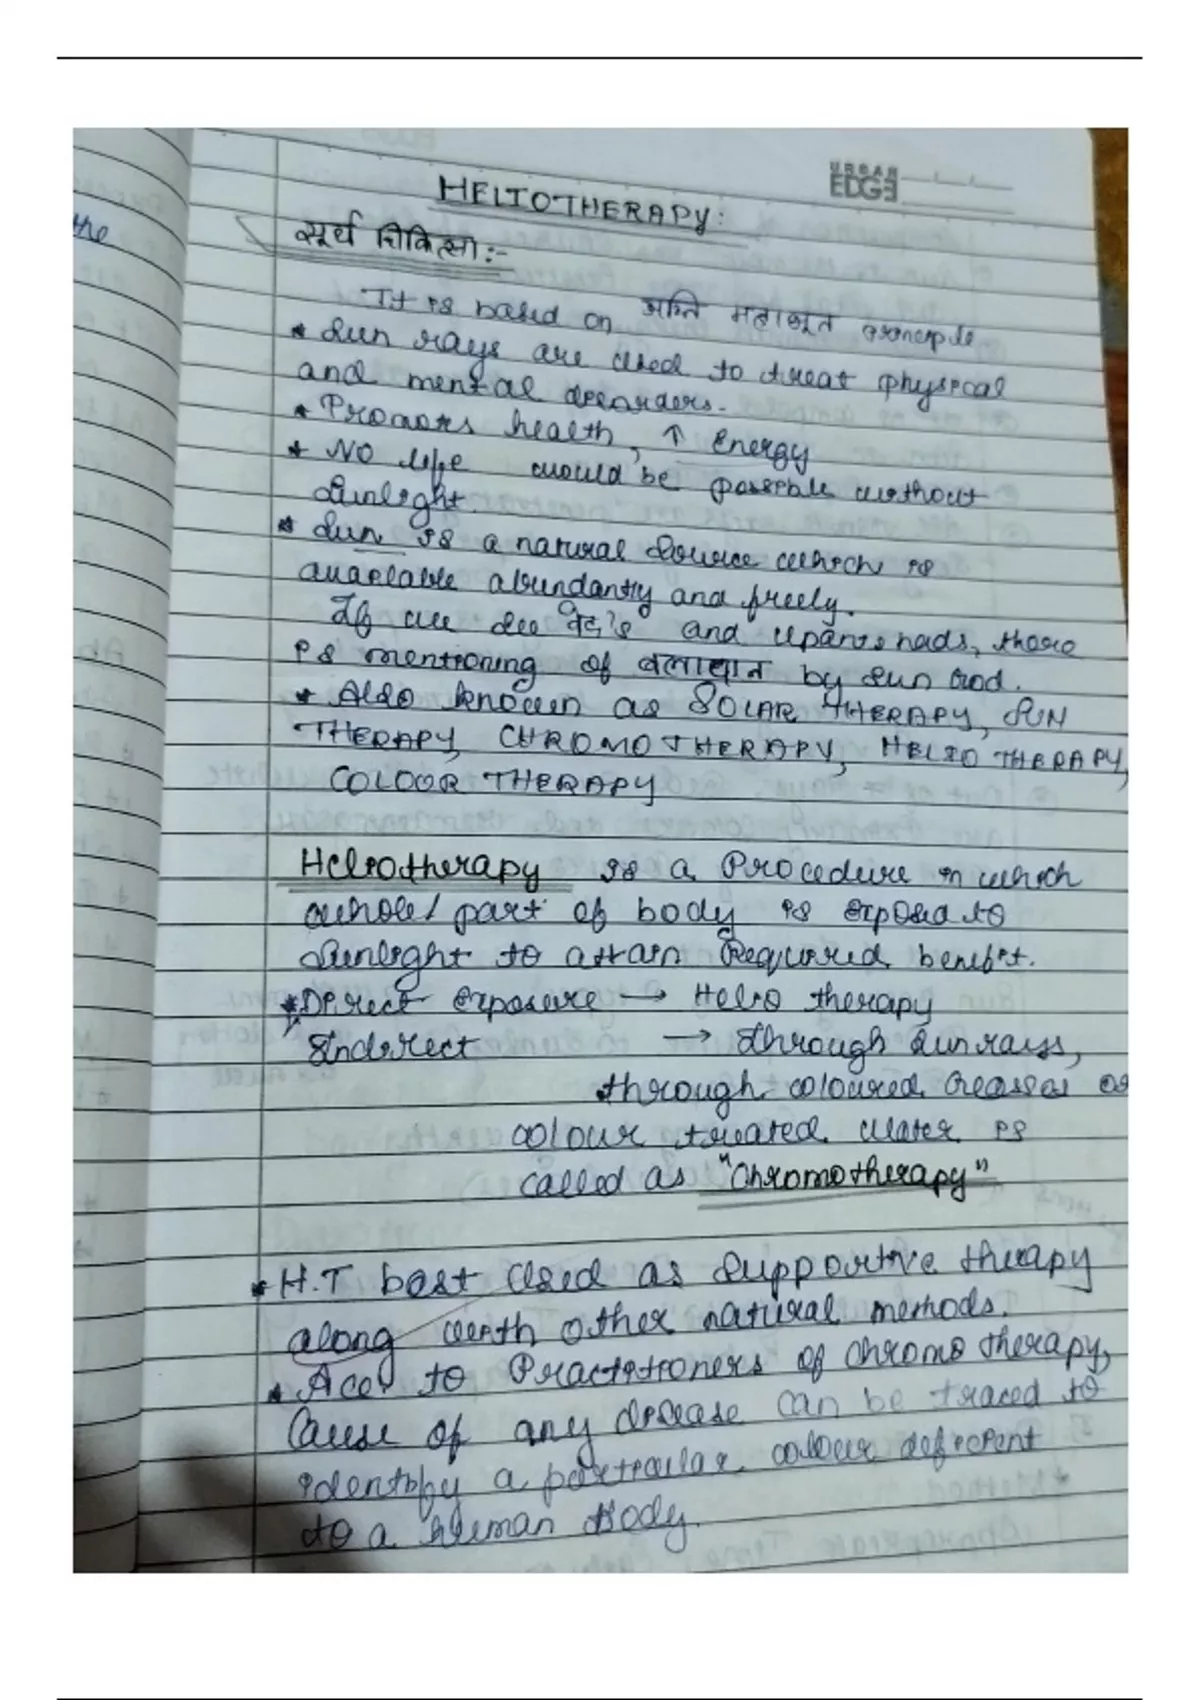 URBAN
EDGE
HELIOTHERAPY:
the
सूर्य चिकित्सा:-
It is based on अग्नि महाभूत principle
* Sun rays are used to treat physical
and mental disorders.
* Promots health, ↑ Energy
* No life would be possible without
Sunlight.
* Sun is a natural source which is
available abundantly and freely.
If we see वेद's and upanishads, there
is mentioning of बलाधान by Sun God.
* Also known as SOLAR THERAPY, SUN
THERAPY, CHROMOTHERAPY, HELIO THERAPY,
COLOUR THERAPY
Heliotherapy is a Procedure in which
whole/part of body is exposed to
Sunlight to attain Required benefit.
* Direct exposure → Helio therapy
* Indirect → through Sunrays,
through coloured Glasses or
colour treated water is
called as "Chromotherapy"
* H.T best Used as Supportive therapy
along with other natural methods.
* Acc. to Practitioners of chromo therapy,
Cause of any disease can be traced to
identify a particular colour deficient
to a human Body.